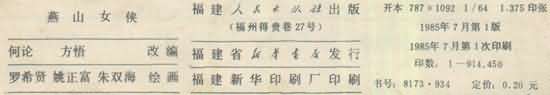 燕山女侠
何论 方悟 改编
罗希贤 姚正富 朱双海 绘画
福建人民出版社出版
(福州得贵巷27号)
福建省新华书店发行
福建新华印刷厂印刷
开本 787×1092 1/64 1.375印张
1985年7月第1版
1985年7月第1次印刷
印数：1—914,450
书号：8173·934 定价：0.20元